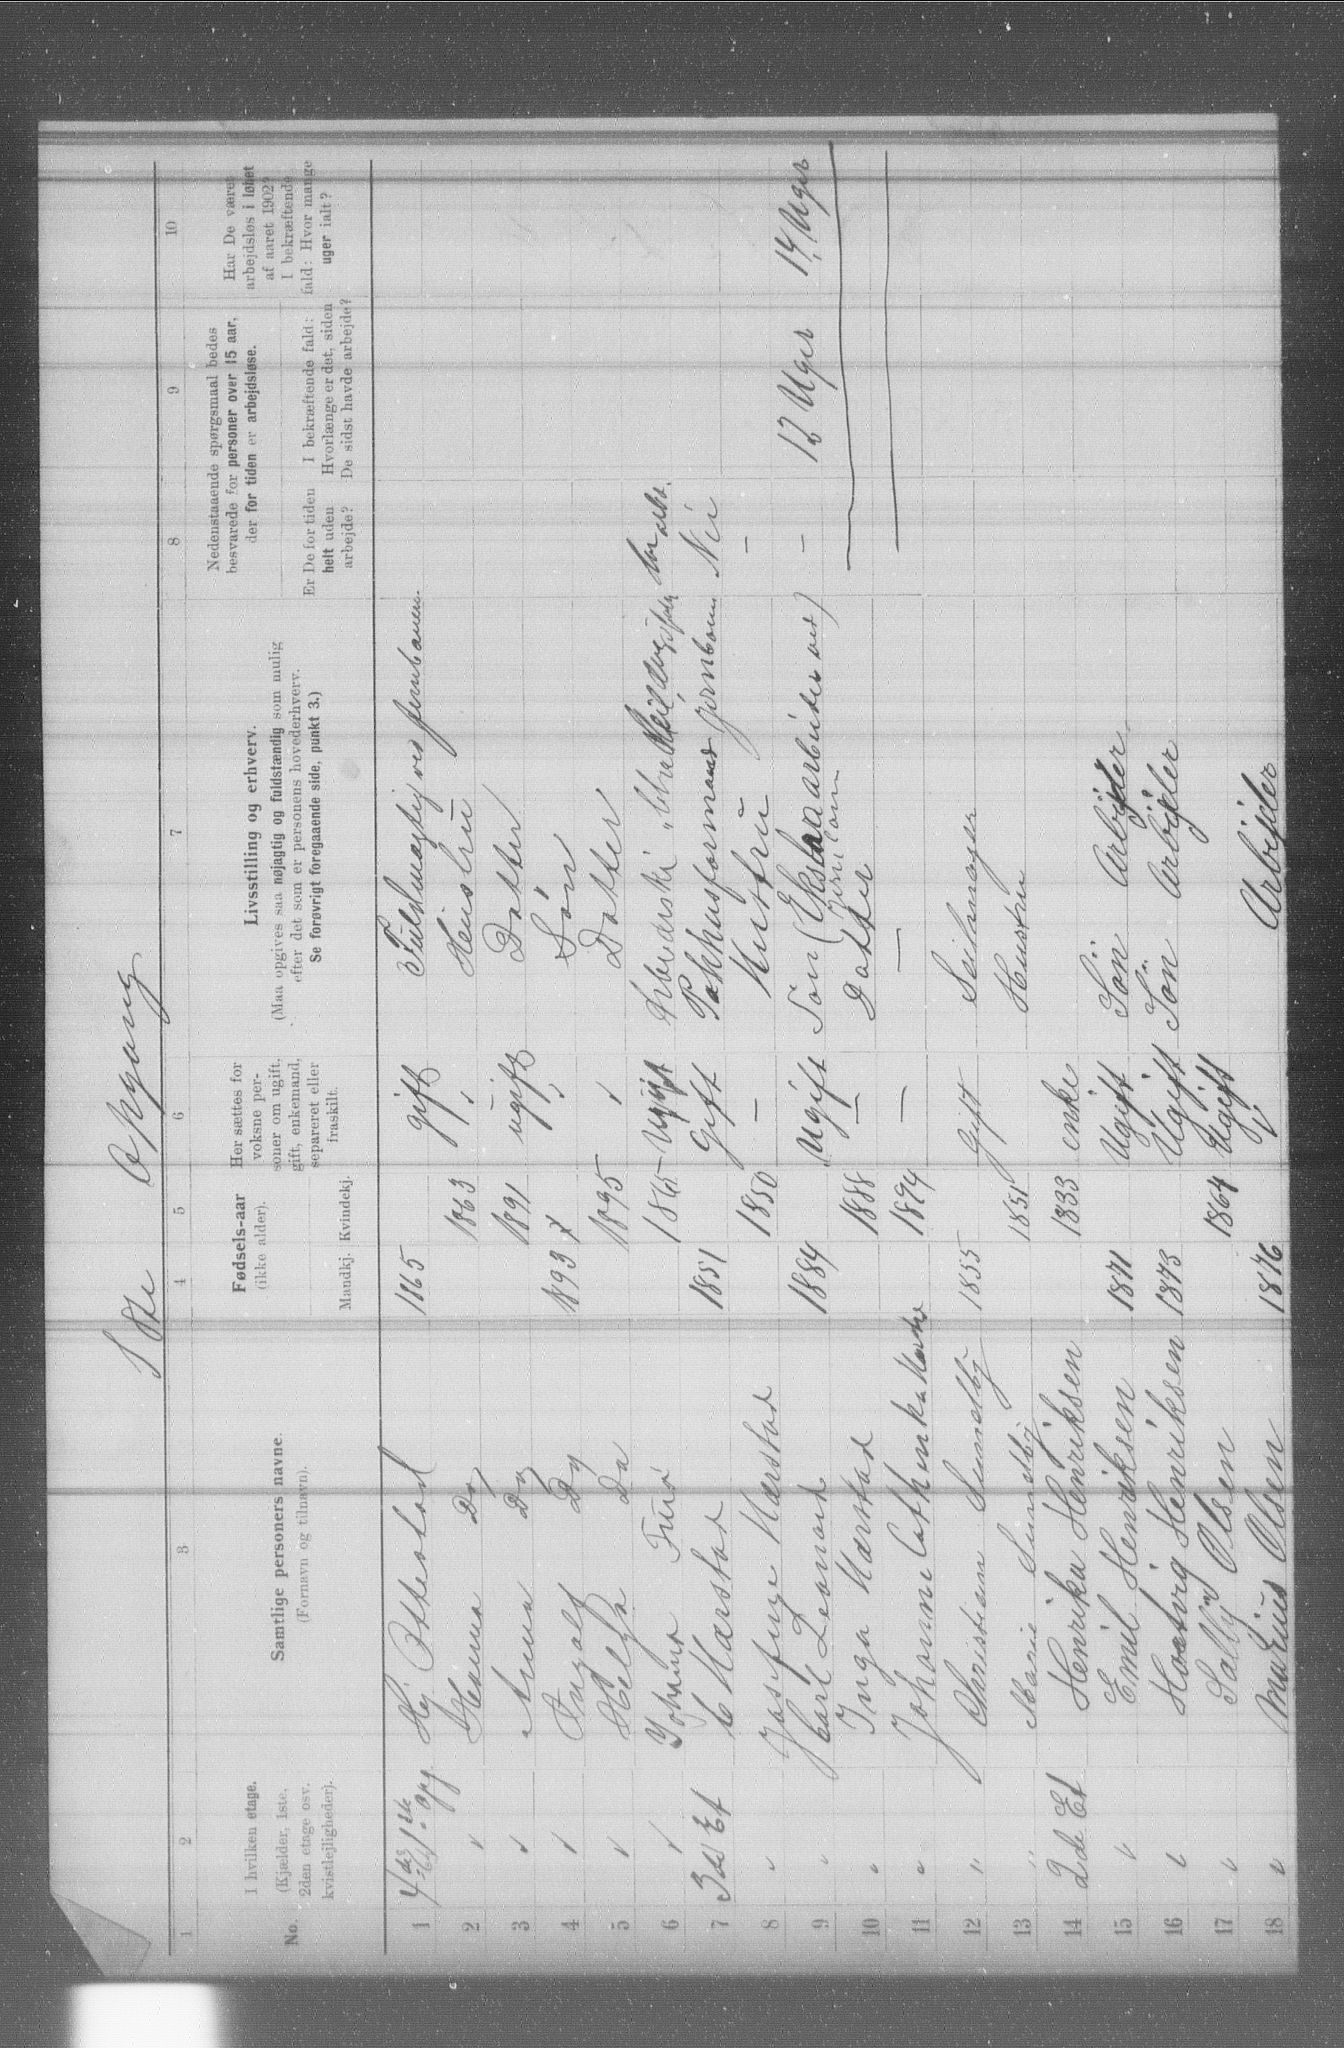 1ste Opgang
1 2 3 4 5 6 7 8 9 10
No.
I hvilken etage.
(Kjælder, 1ste,
2den etage osv.
kvistlejligheder).
Samtlige personers navne.
(Fornavn og tilnavn).
Fødsels-aar
(ikke alder).
Mandkj. Kvindekj.
Her sættes for
voksne per-
soner om ugift,
gift, enkemand,
separeret eller
fraskilt.
Livsstilling og erhverv.
(Maa opgives saa nøjagtig og fuldstændig som mulig
efter det som er personens hovederhverv.
Se forøvrigt foregaaende side, punkt 3.)
Nedenstaaende spørgsmaal bedes
besvarede for personer over 15 aar,
der for tiden er arbejdsløse.
Er De for tiden
helt uden
arbejde?
I bekræftende fald:
Hvorlænge er det, siden
De sidst havde arbejde?
Har De været
arbejdsløs i løbet
af aaret 1902?
I bekræftende
fald: Hvor mange
uger ialt?
1 Hej Ottestad 1865 gift Fuldmægtig ved jernbanen.
2 " Hanna Do 1863 " Hustru
3 " Anna Do 1891 ugift Datter
4 " Ingolf Do 1893 " Søn
5 " Helga Do 1895 " Datter
6 " 1865 Ugift
7 3die Et Mærstad 1851 Gift Pakhusformand Jernban. Nei
8 " Josefine Mærstad 1850 — Hustru —
9 " Carl Leonard 1884 Ugift Søn (Ekstraarbeider ved Jernban) — 12 Uger 14 Uger
10 " Inga Mærstad 1888 — Datter
11 " Johanne Cathinka 1894 — —
12 " Christian Sundby 1855 Gift Seilmager
13 " Marie Sundby 1851 Hustru
14 2de Et Henrika Henriksen 1833 enke
15 " Emil Henriksen 1871 Ugift Søn Arbejder
16 " Hartvig Henriksen 1873 Ugift Søn Arbejder
17 " Sally Olsen 1864 Ugift
18 " Marius Olsen 1876 " Arbejder